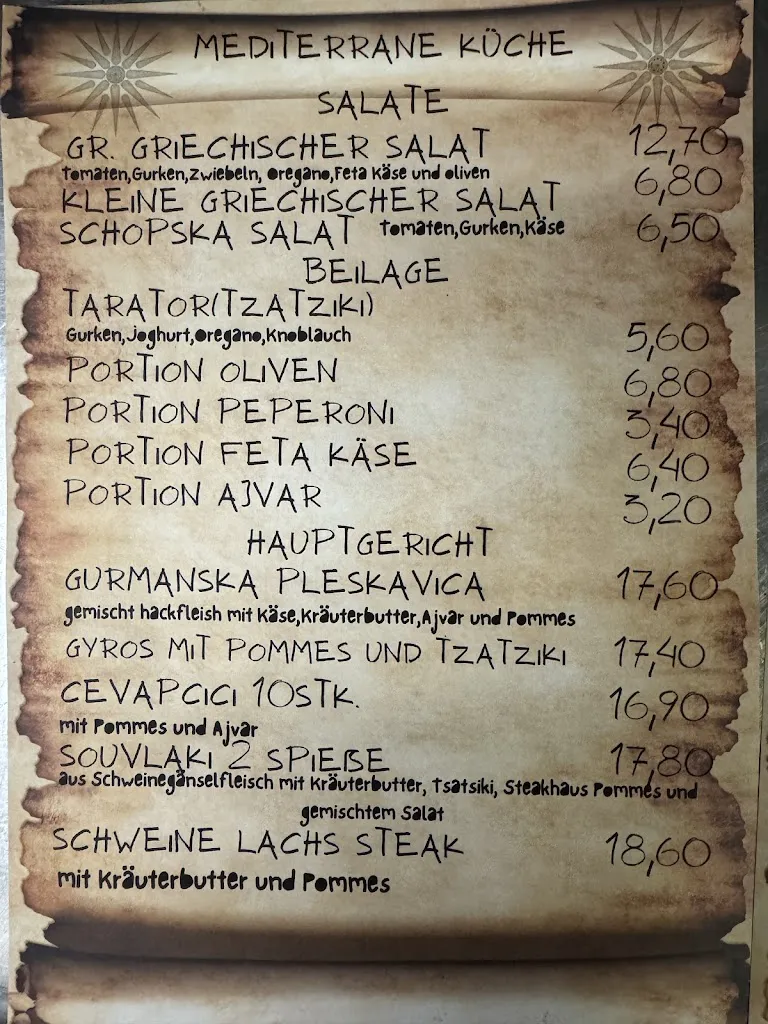 MEDITERRANE KÜCHE
SALATE
GR. GRIECHISCHER SALAT 12,70
Tomaten,Gurken,Zwiebeln, oregano,Feta Käse und oliven
KLEINE GRIECHISCHER SALAT 6,80
SCHOPSKA SALAT Tomaten,Gurken,Käse 6,50
BEILAGE
TARATOR(TZATZIKI)
Gurken,Joghurt,oregano,Knoblauch 5,60
PORTION OLIVEN 6,80
PORTION PEPERONI 3,40
PORTION FETA KÄSE 6,40
PORTION AJVAR 3,20
HAUPTGERICHT
GURMANSKA PLESKAVICA 17,60
gemischt hackfleish mit Käse,Kräuterbutter,Ajvar und Pommes
GYROS MIT POMMES UND TZATZIKI 17,40
CEVAPCICI 10STK. 16,90
mit Pommes und Ajvar
SOUVLAKI 2 SPIEßE 17,80
aus Schweinegänselfleisch mit Kräuterbutter, Tsatsiki, Steakhaus Pommes und
gemischtem Salat
SCHWEINE LACHS STEAK 18,60
mit Kräuterbutter und Pommes